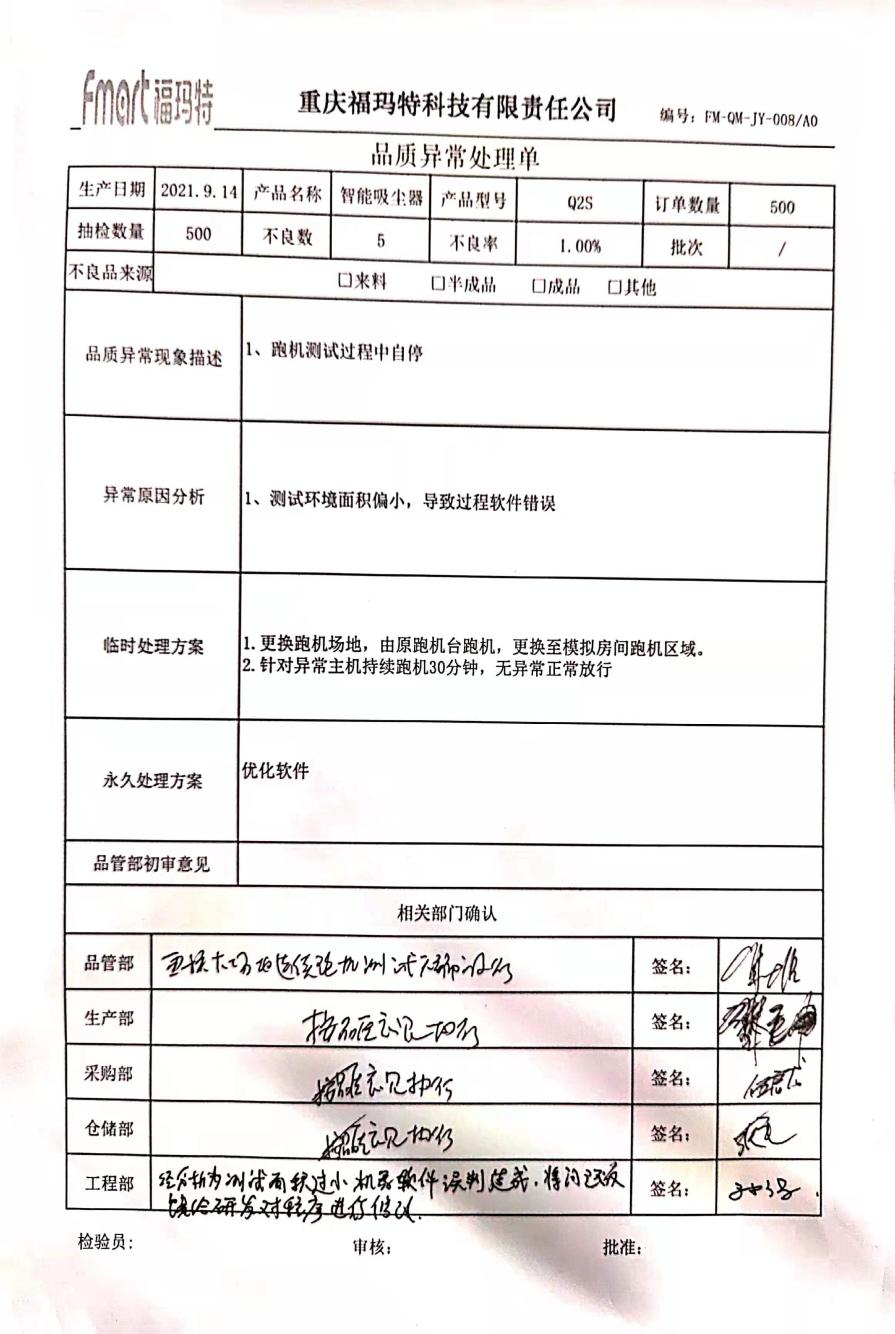 Fmart福玛特
重庆福玛特科技有限责任公司
编号：FM-QM-JY-008/A0
品质异常处理单
生产日期 2021.9.14 产品名称 智能吸尘器 产品型号 Q2S 订单数量 500
抽检数量 500 不良数 5 不良率 1.00% 批次 /
不良品来源 □来料 □半成品 □成品 □其他
品质异常现象描述 1、跑机测试过程中自停
异常原因分析 1、测试环境面积偏小，导致过程软件错误
临时处理方案
1.更换跑机场地，由原跑机台跑机，更换至模拟房间跑机区域。
2.针对异常主机持续跑机30分钟，无异常正常放行
永久处理方案 优化软件
品管部初审意见
相关部门确认
品管部 签名：
生产部 按品管意见执行 签名：
采购部 按品管意见执行 签名：
仓储部 按品管意见执行 签名：
工程部 经分析为测试面积过小机器软件误判造成，将问题反 签名：
馈给研发对程序进行修改.
检验员： 审核： 批准：